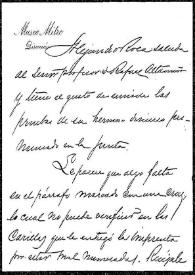 Museo Mitre
Dirección
Alejandro Rosa saluda
al Señor profesor D. Rafael Altamira
y tiene el gusto de enviarle las
pruebas de su hermoso discurso pro-
nunciado en la Junta.
Le parece que algo falta
en el párrafo marcado con una cruz,
lo cual no puede verificar en las
Carillas que le entregó la imprenta
por estar mal numeradas.